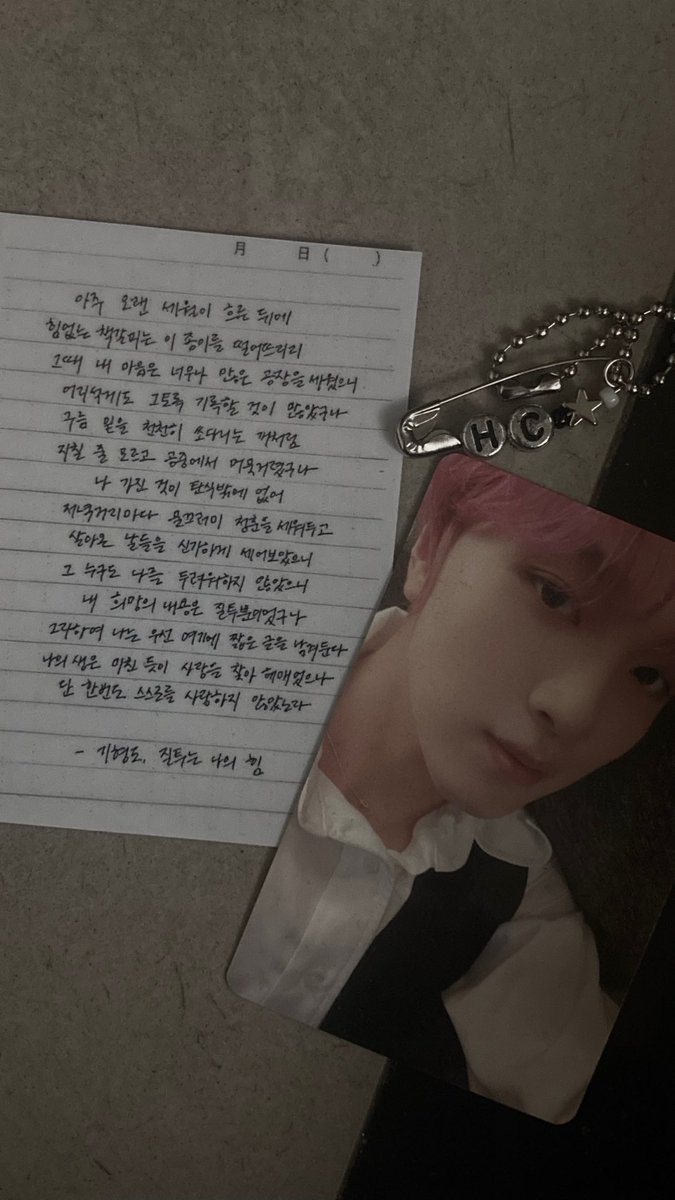 月 日( )
아주 오랜 세월이 흐른 뒤에
힘없는 책갈피는 이 종이를 떨어뜨리리
그때 내 마음은 너무나 많은 공장을 세웠으니
어리석게도 그토록 기록할 것이 많았구나
구름 밑을 천천히 쏘다니는 개처럼
지칠 줄 모르고 공중에서 머뭇거렸구나
나 가진 것이 탄식밖에 없어
저녁거리마다 물끄러미 청춘을 세워두고
살아온 날들을 신기하게 세어보았으니
그 누구도 나를 두려워하지 않았으니
내 희망의 내용은 질투뿐이었구나
그리하여 나는 우선 여기에 짧은 글을 남겨둔다
나의 생은 미친 듯이 사랑을 찾아 헤매었으나
단 한번도 스스로를 사랑하지 않았노라
- 기형도, 질투는 나의 힘
HC